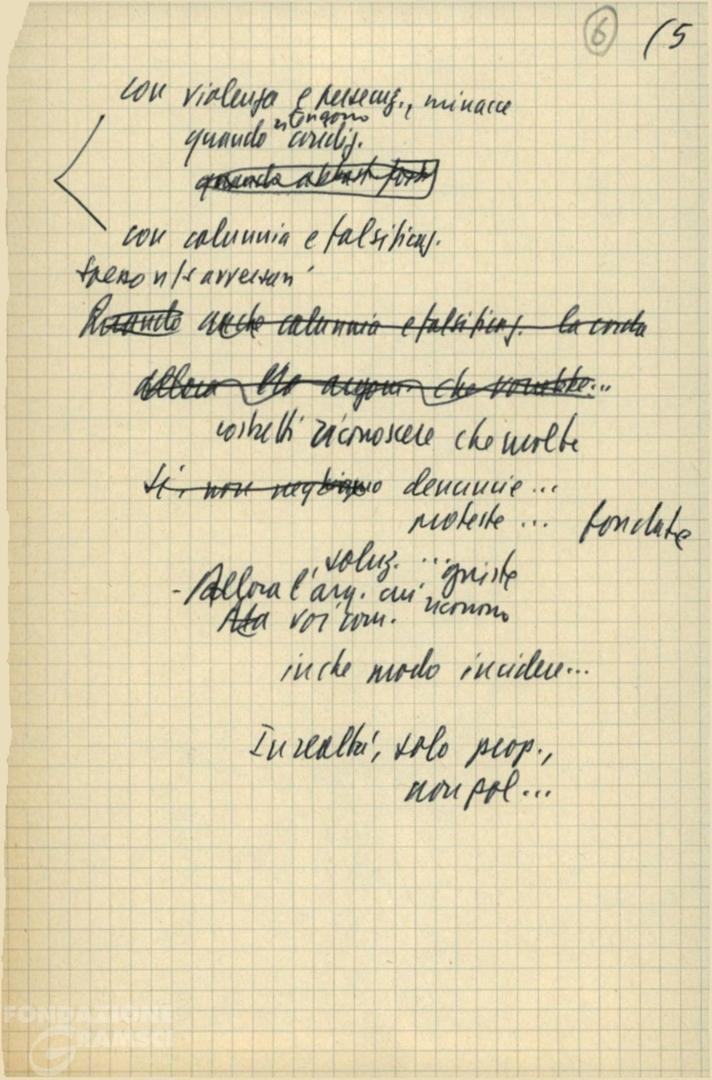 6 (5
con violenza e persecuz., minacce
quando ritengono condiz.
quando abbast. forti
con calunnia e falsificaz.
spesso n/s avversari
Quando anche calunnia e falsificaz. la corda
allora che
costretti riconoscere che molte
si, non neghiamo denuncie...
proteste ... fondate
soluz. ... giuste
- Allora l'arg. cui ricorrono
Ma voi com.
in che modo incidere...
In realtà, solo prop.,
non pol...
FONDAZIONE
GRAMSCI